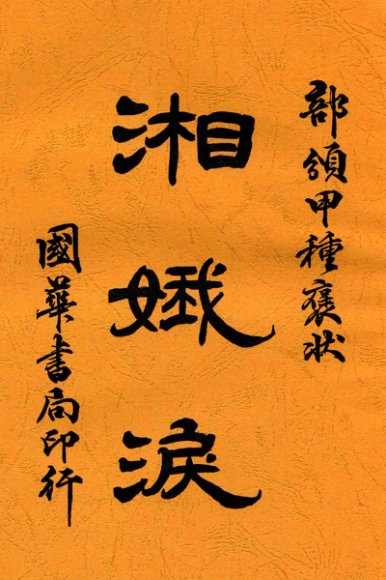 部領甲種褒狀
湘娥淚
國華書局印行